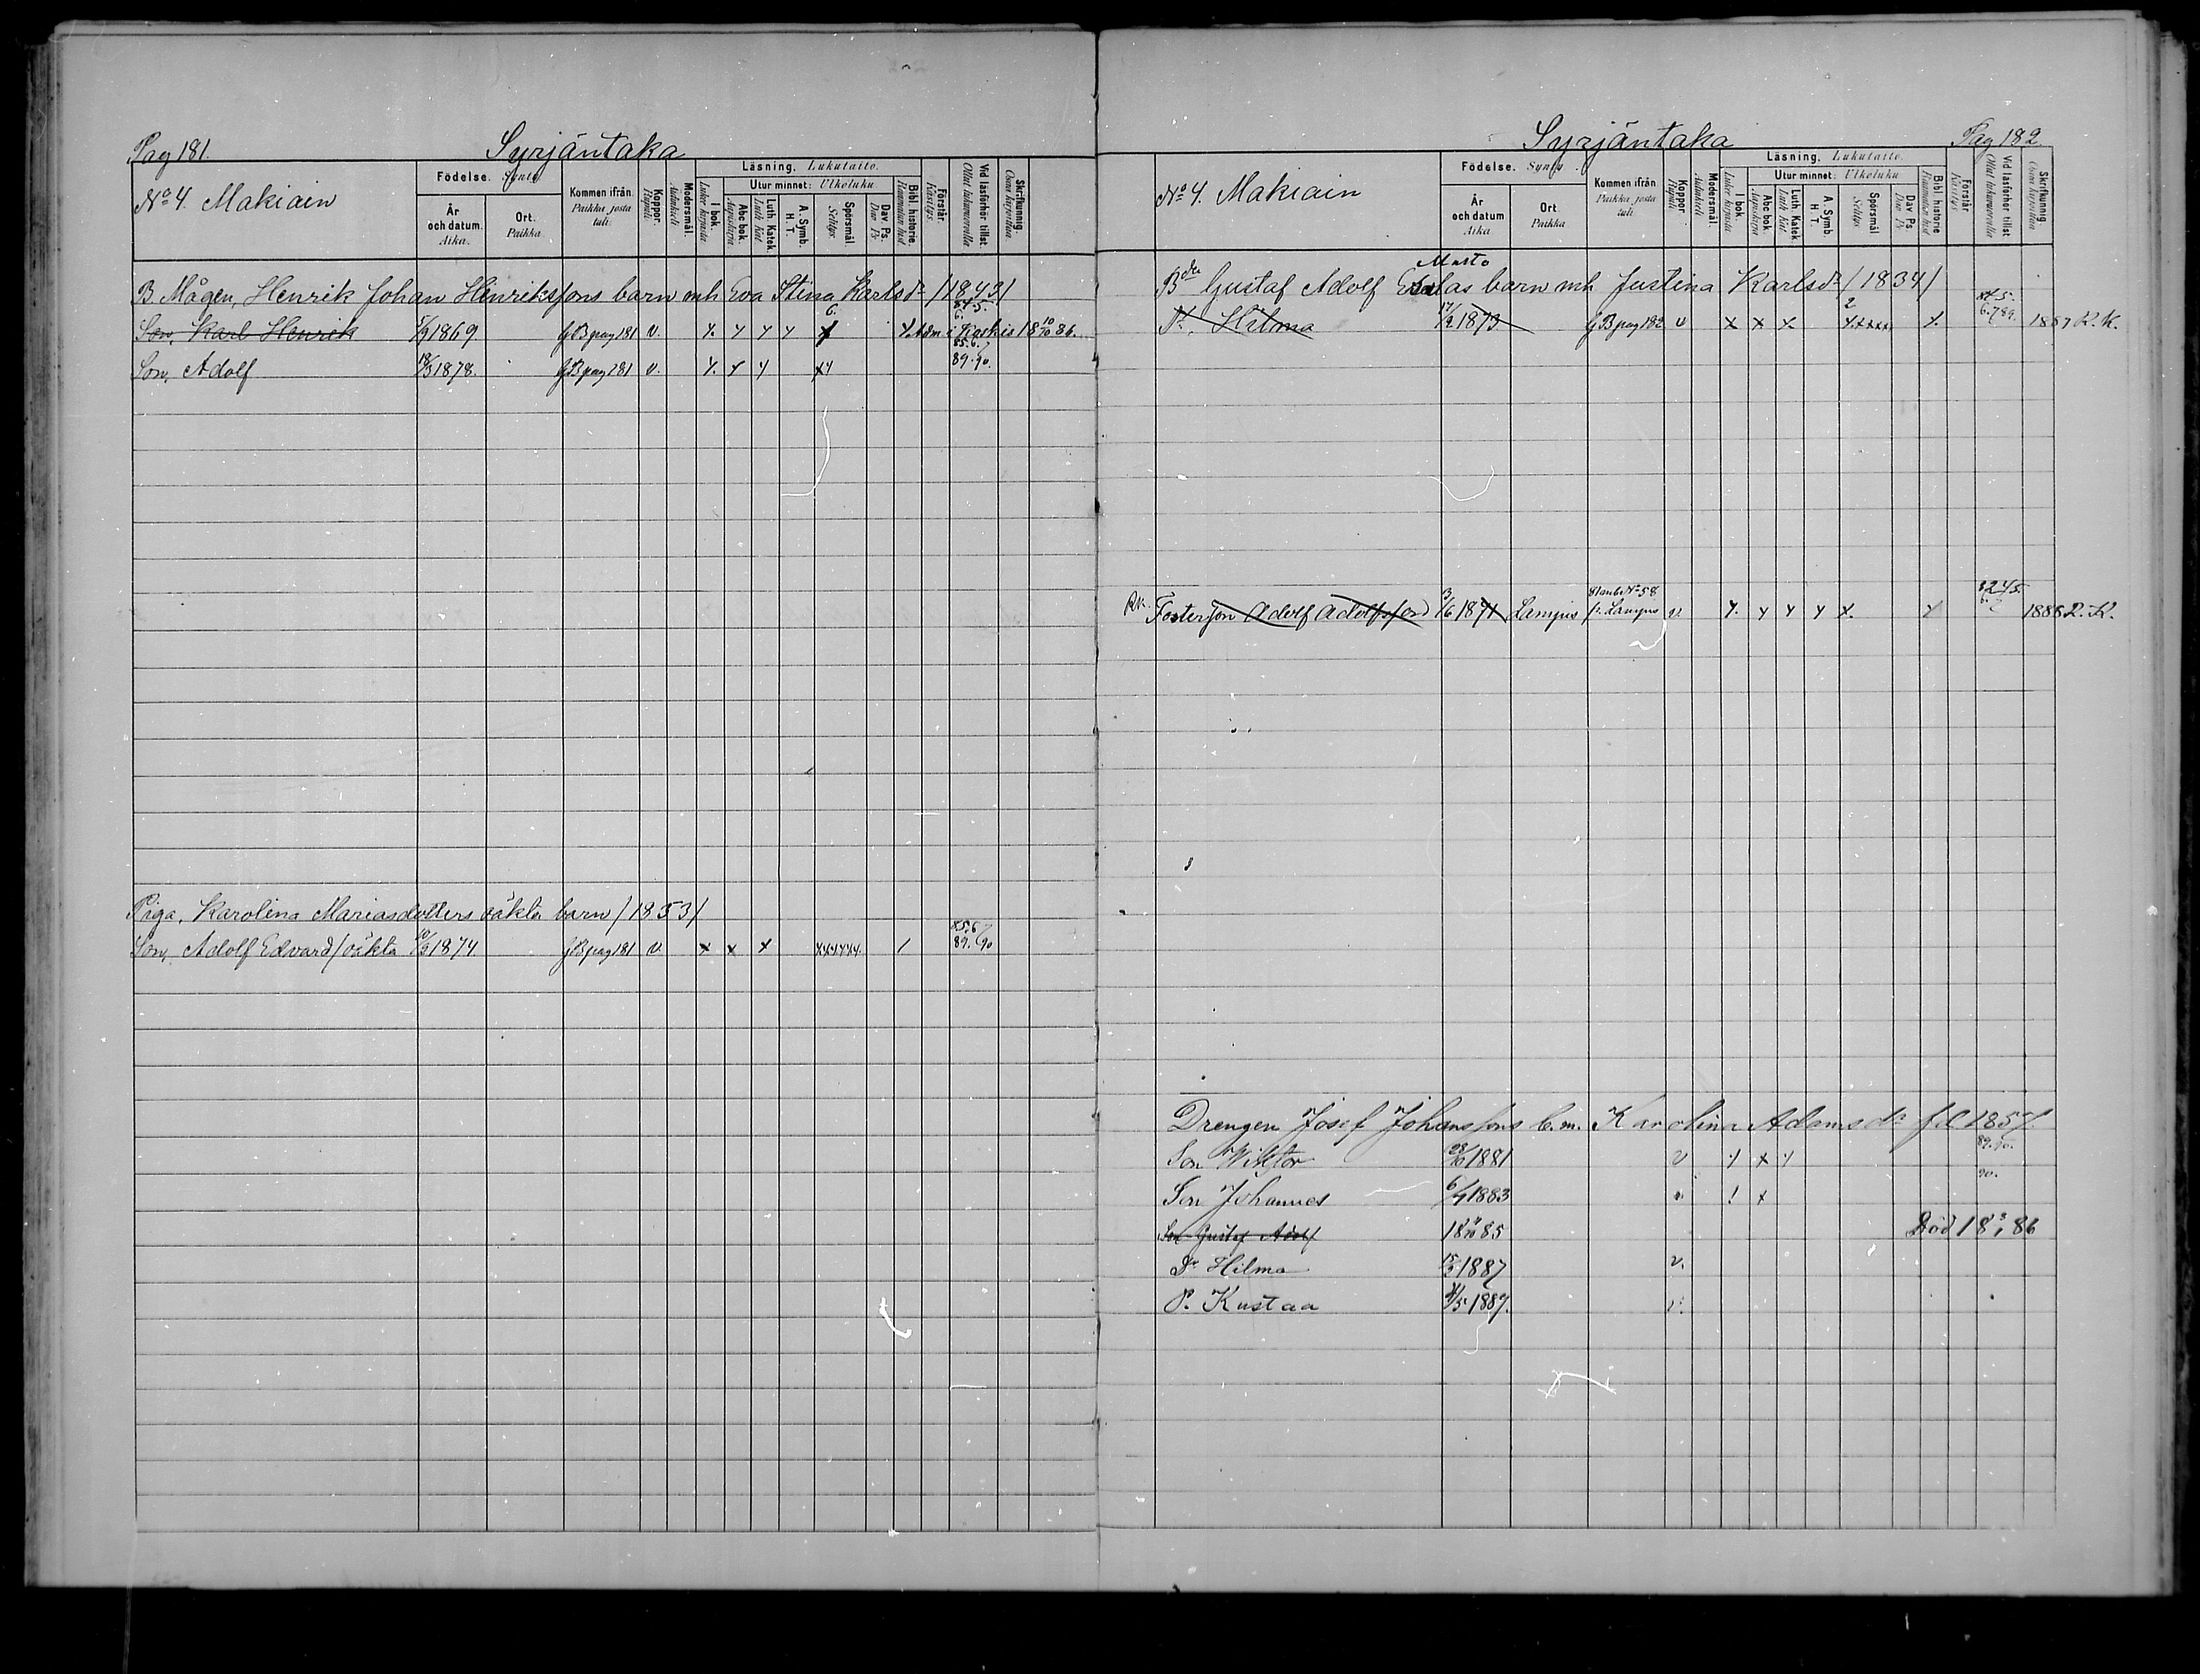 Pag 181.
Syrjäntaka
No 4. Makiain
Födelse. Synty
År och datum. Aika.
Ort. Paikka.
Kommen ifrån. Paikka josta tuli.
Koppor. Rupuli
Modersmål. Äidinkieli
Läsning. Lukutaito.
I bok. Lukee kirjasta
Utur minnet: Ulkoluku
Abc bok. Aapiskirja
Luth. Katek. Luth. Kat.
A. Symb. H. T.
Spörsmål Selitys
Dav. Ps. Dav. Ps
Bibl. historie. Raamatun hist.
Förstår. Käsitys.
Vid läsförhör tillst. Ollut lukuuvorolla
Skrifkunnig. Osaa kirjoittaa
B. Mågen, Henrik Johan Henriksfons barn mh Eva Stina Karlsdr /1843/
Son, Karl Henrik 5/9 1869. GB pag 181 v. Adm i Koskis 18 10/10 86.
Son, Adolf 18/3 1878. GB pag 181 v. 85.6.7 89.90.
Piga, Karolina Mariasdotters oäkta barn /1853/
Son, Adolf Edvard /oäkta 10/3 1874 GB pag 181 v. 85.6.7 89.90
Syrjäntaka
Pag 182
No 4. Makiain
Födelse. Synty
År och datum Aika
Ort. Paikka
Kommen ifrån Paikka, josta tuli.
Koppor Rupuli
Modersmål. Äidinkieli
Läsning. Lukutaito.
I bok. Lukee kirjasta
Utur minnet: Ulkoluku
Abc bok. Aapiskirja
Luth. Katek. Luth. Kat.
A. Symb. H. T.
Spörsmål Selitys
Dav. Ps Dav. Ps
Bibl. historie Raamatun hist.
Förstår Käsitys
Vid läsförhör tillst. Ollut lukuuvorolla
Skrifkunnig. Osaa kirjoittaa
Musto
Bde Gustaf Adolf barn mh Justina Karlsdr /1834/
Dr. Hilma 17/2 1873 GB pag 182 v 84.5. 6.7 89. 1889 R.K.
Rk. Fosterson Adolf Adolfsfon 3/6 1871 Lampis fr. Lampis v. 1888 R.K.
Drengen Josef Johansfons b.m. Karolina Adamsdr fd 1857.
Son Wiktor 28/10 1881 v 89.90.
Son Johannes 6/7 1883 90.
Son Gustaf Adolf 18 4/10 85 Död 18 3/1 86
Dr Hilma 15/3 1887 v.
P. Kustaa 31/5 1889.